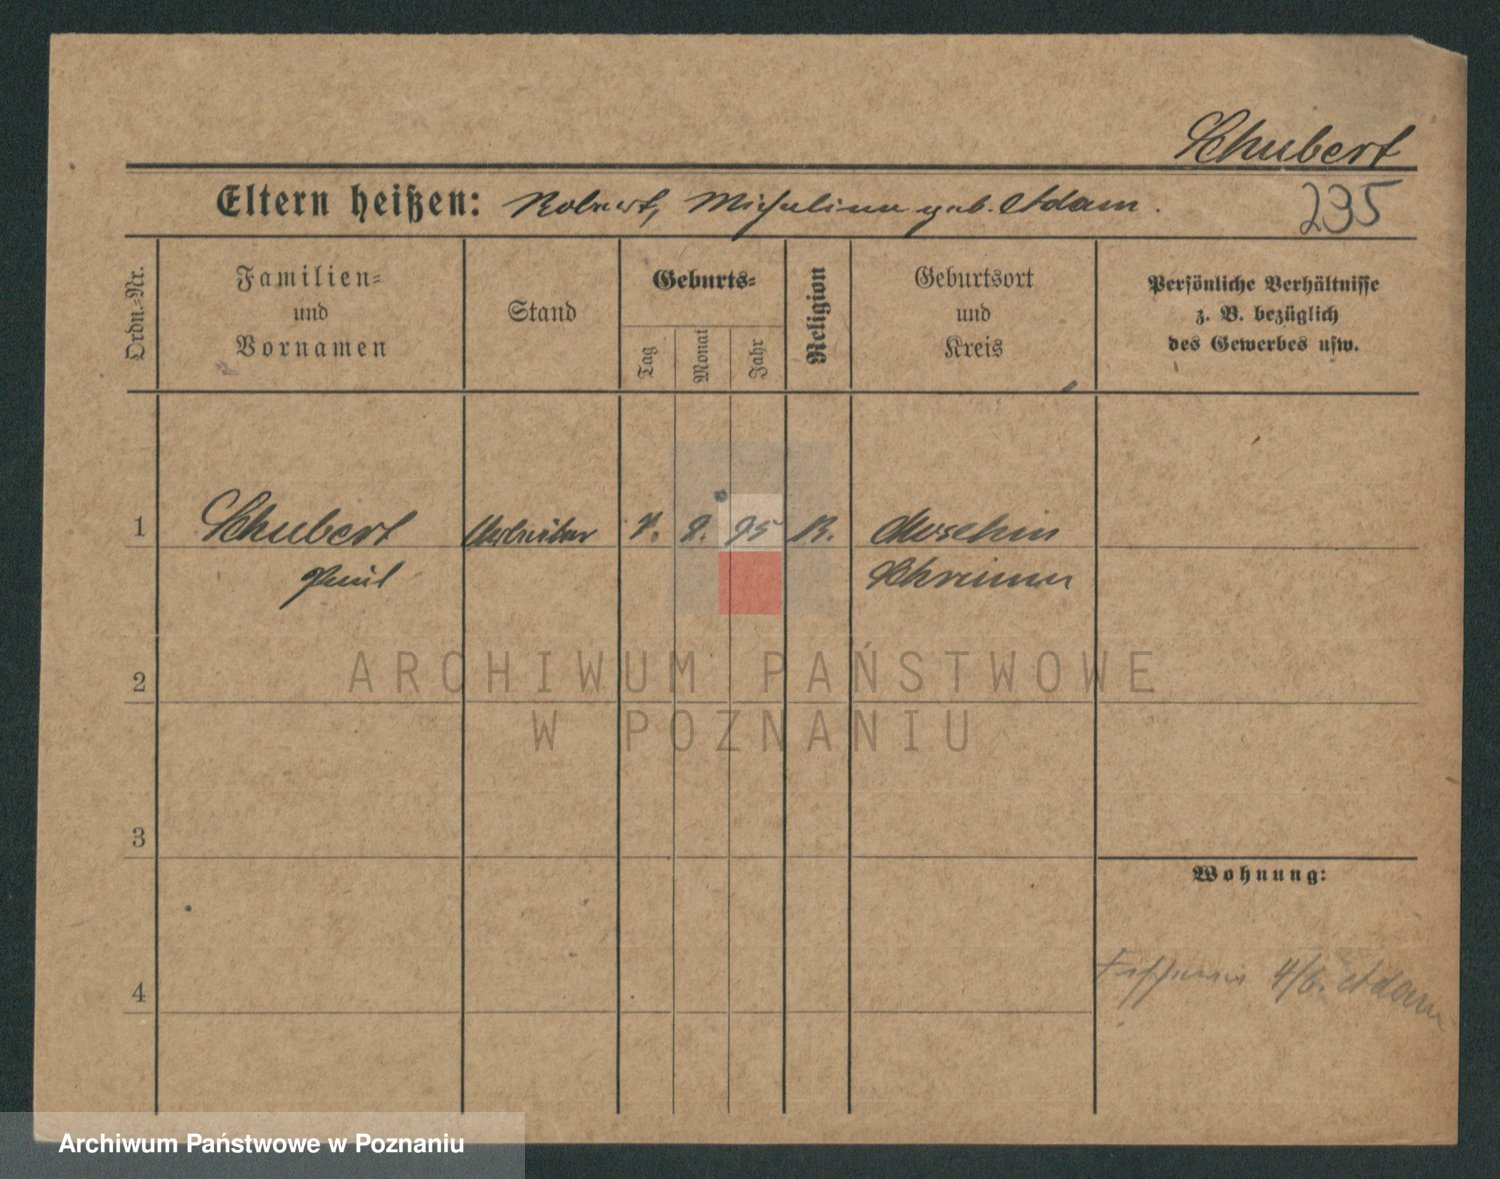 Schubert
Eltern heißen: Robert, Michalina geb. Adam.
235
Ordn.-Nr.
Familien-
und
Vornamen
Stand
Geburts-
Tag
Monat
Jahr
Religion
Geburtsort
und
Kreis
Persönliche Verhältnisse
z. B. bezüglich
des Gewerbes usw.
1
Schubert
Paul
Arbeiter
95
K.
Moschin
Schrimm
ARCHIWUM PAŃSTWOWE
W POZNANIU
2
3
Wohnung:
4
4/b. Adam
Archiwum Państwowe w Poznaniu